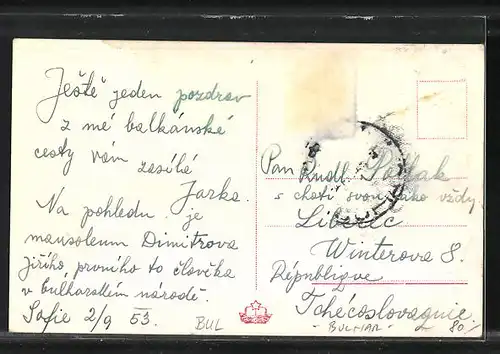 Ještě jeden pozdrav
z mé balkánské
cesty vám zasílá
Jarka.
Na pohledu je
mausoleum Dimitrova
Jiřího, prvního to člověka
v bulharském národě.
Sofie 2/9 53.
BUL
Pan Rudl. Pollak
s chotí svou jako vždy
Liberec
Winterova 8.
République
Tchécoslovaquie.
- BULHAR -
80.-